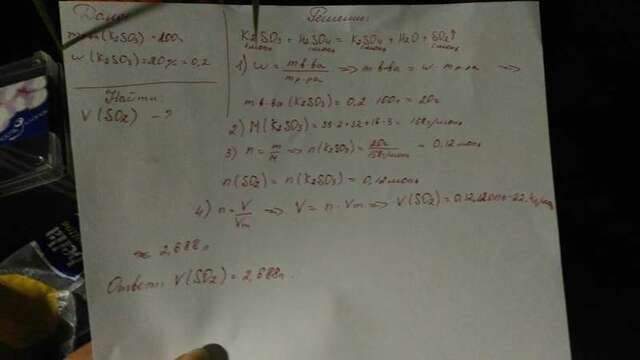 Дано:
m р-р(K2SO3) = 100г
w (K2SO3) = 20% = 0,2
Найти:
V (SO2) - ?
Решение:
K2SO3 + H2SO4 = K2SO4 + H2O + SO2↑
1моль 1моль 1моль 1моль
1) w = m в-ва / m р-ра => m в-ва = w · m р-ра =>
m в-ва (K2SO3) = 0,2 · 100г = 20г
2) M (K2SO3) = 39·2+32+16·3 = 158г/моль
3) n = m/M => n(K2SO3) = 20г / 158г/моль = 0,12моль
n(SO2) = n(K2SO3) = 0,12моль
4) n = V/Vm => V = n · Vm => V(SO2) = 0,12моль · 22,4л/моль
≈ 2,688л
Ответ: V(SO2) = 2,688л.